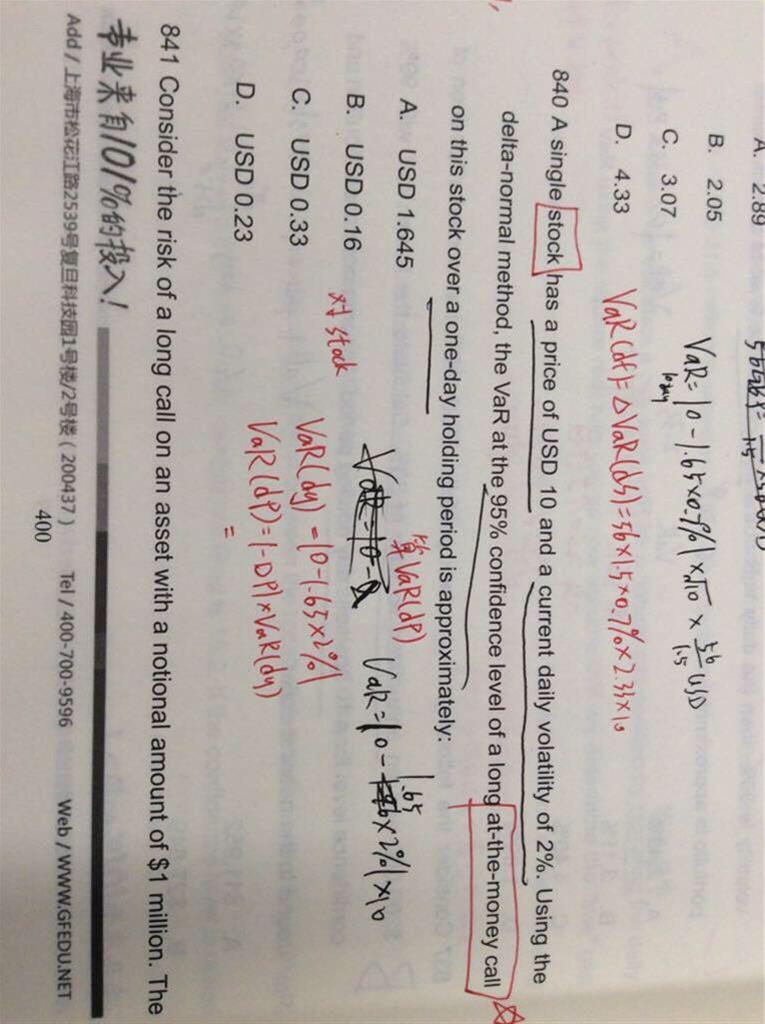 A. 2.89
B. 2.05
C. 3.07
D. 4.33
VaR = |0-1.65×0.7%|×√10 × 56/1.5 USD
10day
VaR(df)=ΔVaR(ds)=56×1.5×0.7%×2.33×10
840 A single stock has a price of USD 10 and a current daily volatility of 2%. Using the
delta-normal method, the VaR at the 95% confidence level of a long at-the-money call
on this stock over a one-day holding period is approximately:
A. USD 1.645
B. USD 0.16
C. USD 0.33
D. USD 0.23
算VaR(dP)
VaR=|0-
VaR=|0-1.65×2%|×10
对 stock
VaR(dy)=|0-1.65×2%|
VaR(dP)=|-DP|×VaR(dy)
=
841 Consider the risk of a long call on an asset with a notional amount of $1 million. The
专业来自101%的投入!
Add / 上海市松花江路2539号复旦科技园1号楼/2号楼 ( 200437 ) Tel / 400-700-9596 Web / WWW.GFEDU.NET
400